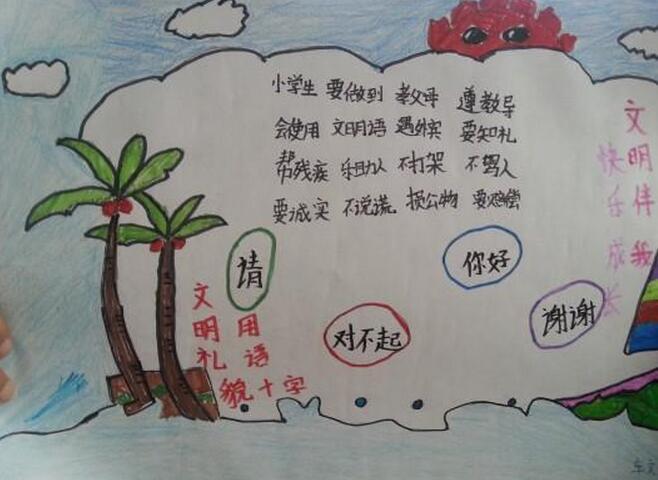 小学生 要做到 孝父母 遵教导
会使用 文明语 遇外宾 要知礼
帮残疾 乐助人 不打架 不骂人
要诚实 不说谎 损公物 要赔偿
文明伴我
快乐成长
请
你好
对不起
谢谢
文明礼貌
用语十字
车文